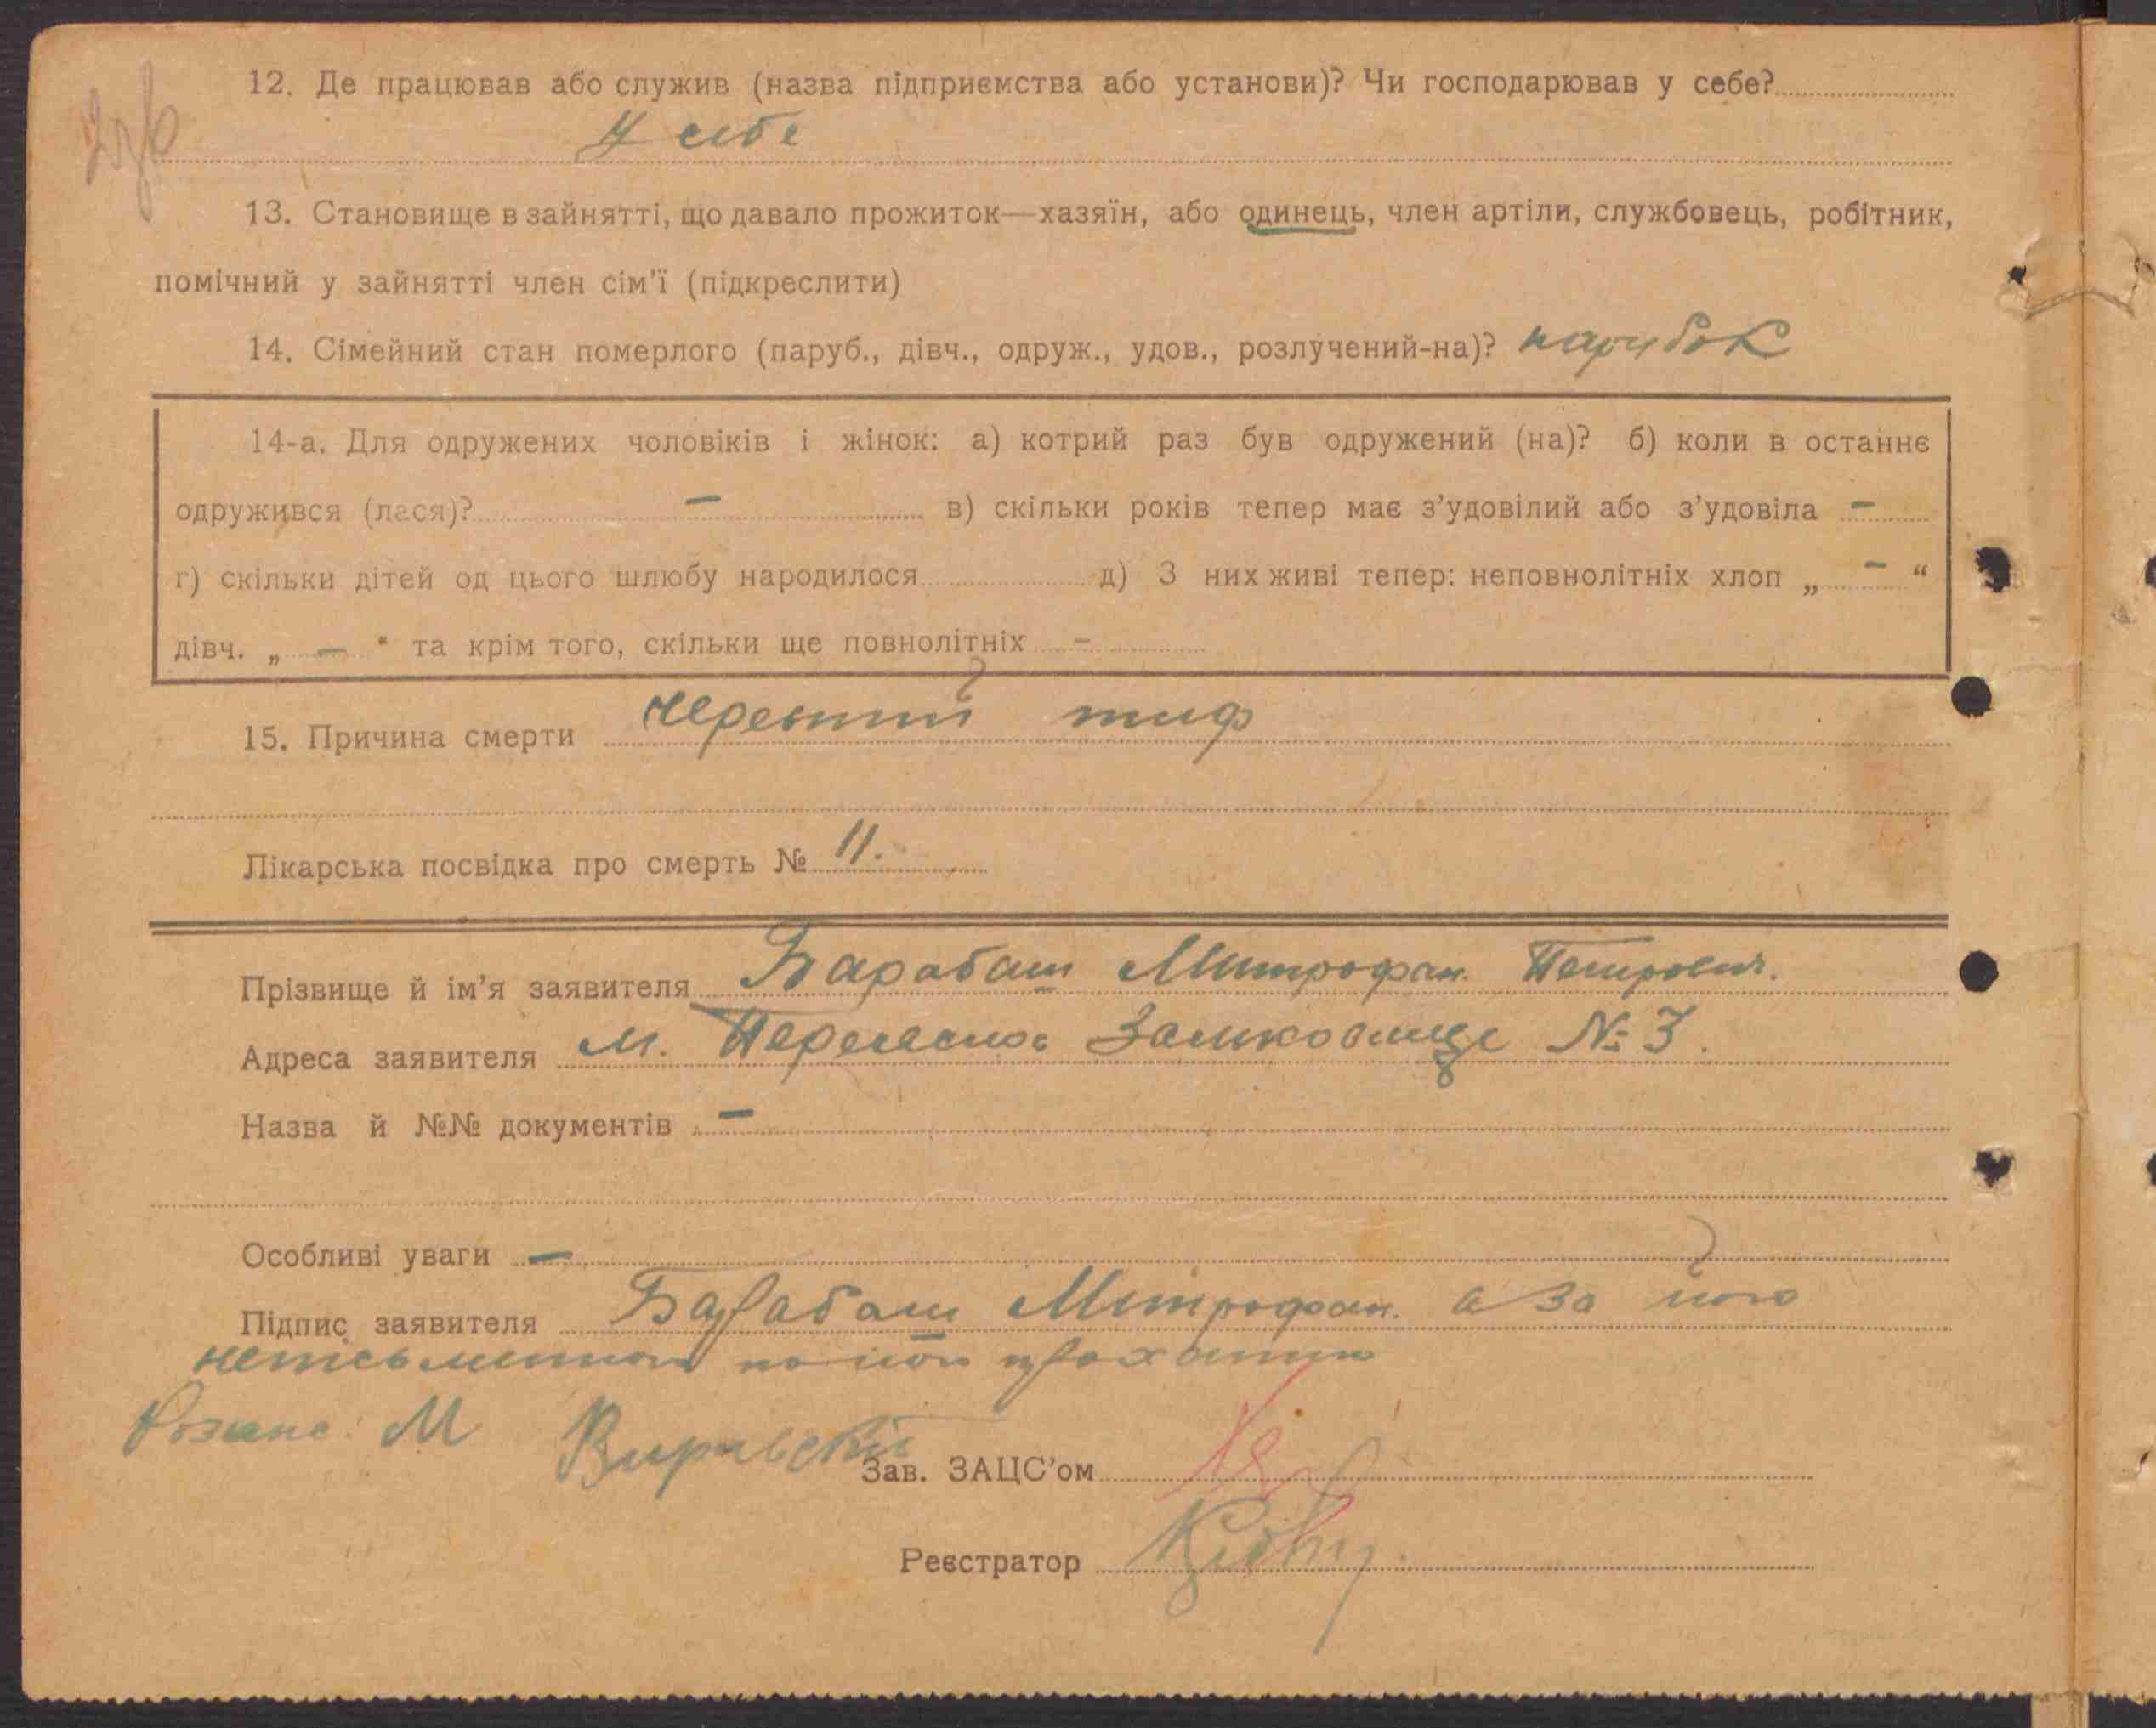 12. Де працював або служив (назва підприємства або установи)? Чи господарював у себе?
У себе
13. Становище в зайнятті, що давало прожиток—хазяїн, або одинець, член артіли, службовець, робітник,
помічний у зайнятті член сім'ї (підкреслити)
14. Сімейний стан померлого (паруб., дівч., одруж., удов., розлучений-на)? парубок
14-а. Для одружених чоловіків і жінок: а) котрий раз був одружений (на)? б) коли в останнє
одружився (лася)? — в) скільки років тепер має з'удовілий або з'удовіла —
г) скільки дітей од цього шлюбу народилося д) З них живі тепер: неповнолітніх хлоп „ — “
дівч. „ — “ та крім того, скільки ще повнолітніх —
15. Причина смерти черевний тиф
Лікарська посвідка про смерть № 11.
Прізвище й ім'я заявителя Барабаш Митрофан Петрович.
Адреса заявителя м. Переяслов Замковище № 3.
Назва й №№ документів —
Особливі уваги —
Підпис заявителя Барабаш Митрофан. а за його
неписьменного по його проханню
М
Зав. ЗАЦС'ом
Реєстратор